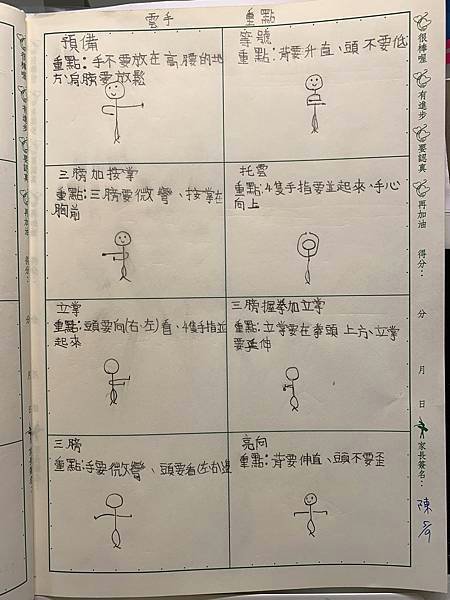 雲手 重點
預備
重點:手不要放在高腰的地
方、肩膀要放鬆
等號
重點:背要升直、頭不要低
三膀加按掌
重點:三膀要微彎、按掌在
胸前
托雲
重點:4隻手指要並起來、手心
向上
立掌
重點:頭要向(右、左)看、4隻手指並
起來
三膀握拳加立掌
重點:立掌要在拳頭上方、立掌
要延伸
三膀
重點:手要微彎、頭要看(左右)邊
亮向
重點:背要伸直、頭不要歪
很棒喔
有進步
要認真
再加油
得分:
分
月
日
家長簽名:
陳
很棒喔
有進步
要認真
再加油
得分:
分